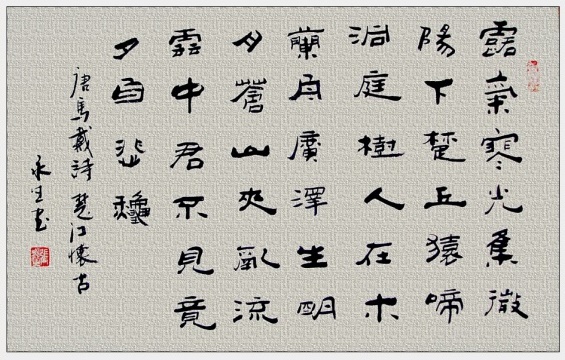 露氣寒光集微
陽下楚丘猿啼
洞庭樹人在木
蘭舟廣澤生明
月蒼山夾亂流
雲中君不見竟
夕自悲龝
唐馬戴詩楚江懷古
永生書